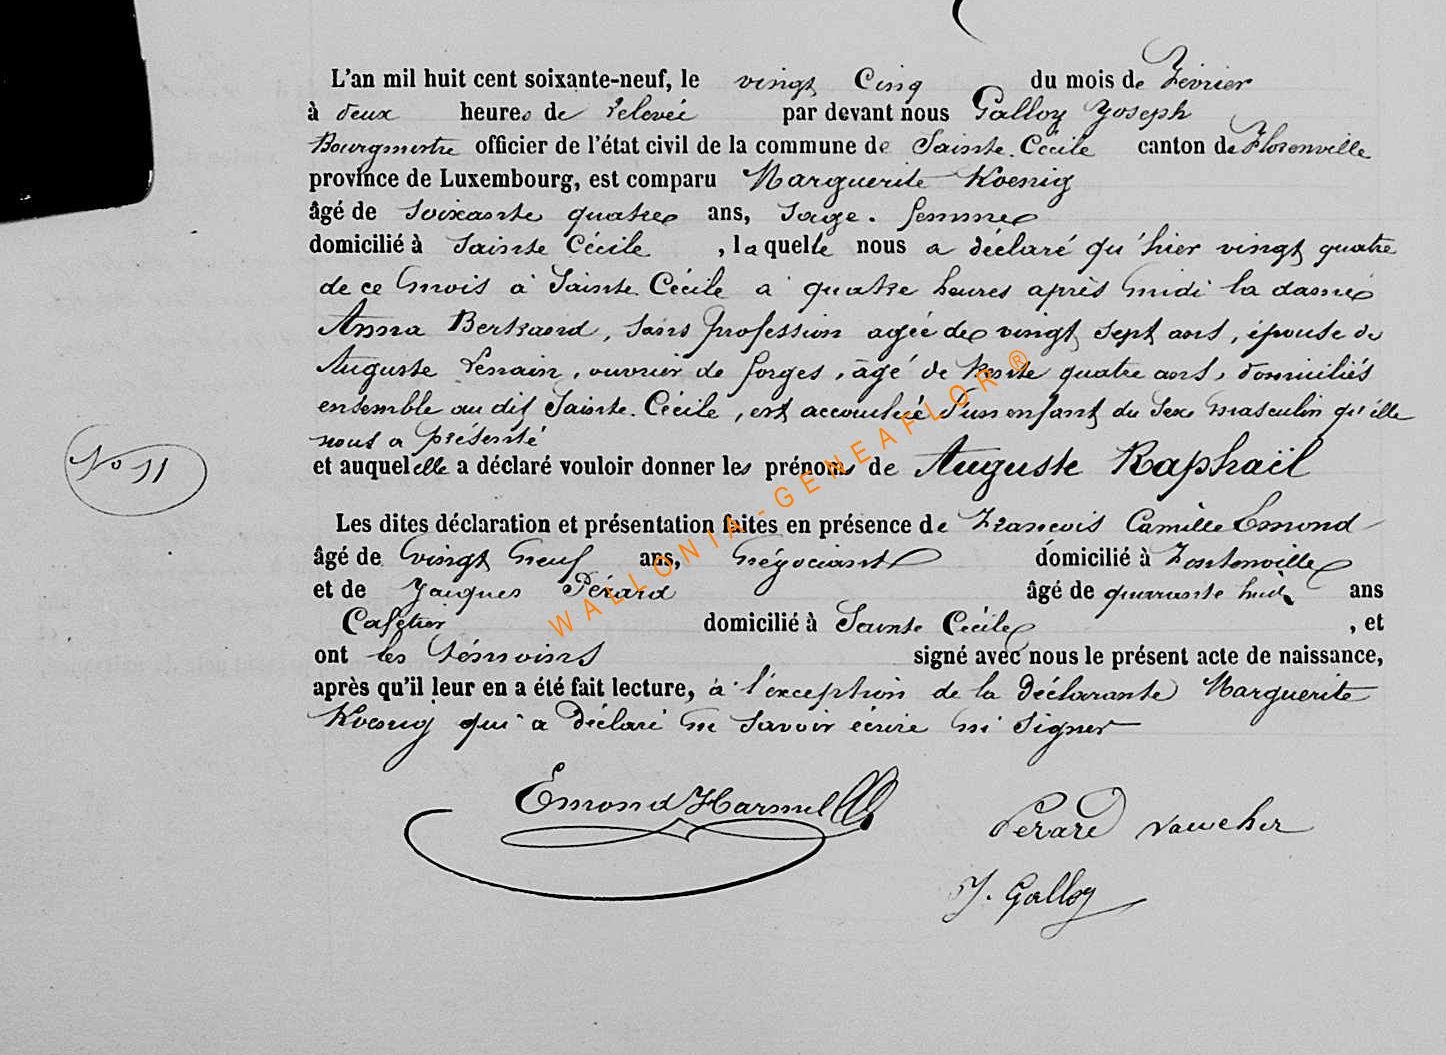 L'an mil huit cent soixante-neuf, le vingt Cinq du mois de Février
à deux heures de relevée par devant nous Galloy Joseph
Bourgmestre officier de l'état civil de la commune de Sainte. Cécile canton de Florenville
province de Luxembourg, est comparu Marguerite Koenig
âgé de soixante quatre ans, sage. femme
domicilié à Sainte Cécile , laquelle nous a déclaré qu'hier vingt quatre
de ce mois à Sainte. Cécile a quatre heures après midi la dame
Anna Bertrand, sans profession agée de vingt sept ans, épouse de
Auguste , ouvrier de forges, âgé de trente quatre ans, domiciliés
ensemble au dit Sainte. Cécile, est accouchée d'un enfant du sexe masculin qu'elle
nous a présenté
N° 11
et auquel elle a déclaré vouloir donner les prénoms de Auguste Raphaël
Les dites déclaration et présentation faites en présence de Francois Camille Emond
âgé de vingt neuf ans, négociant domicilié à
et de Jacques Pérard âgé de quarante huit ans
Cafetier domicilié à Sainte Cécile , et
ont les témoins signé avec nous le présent acte de naissance,
après qu'il leur en a été fait lecture, à l'exception de la déclarante Marguerite
Koenig qui a déclaré ne savoir écrire ni signer
Emond Harmel
Perard Vaucher
J. Galloy
WALLONIA-GENEAFLOR®